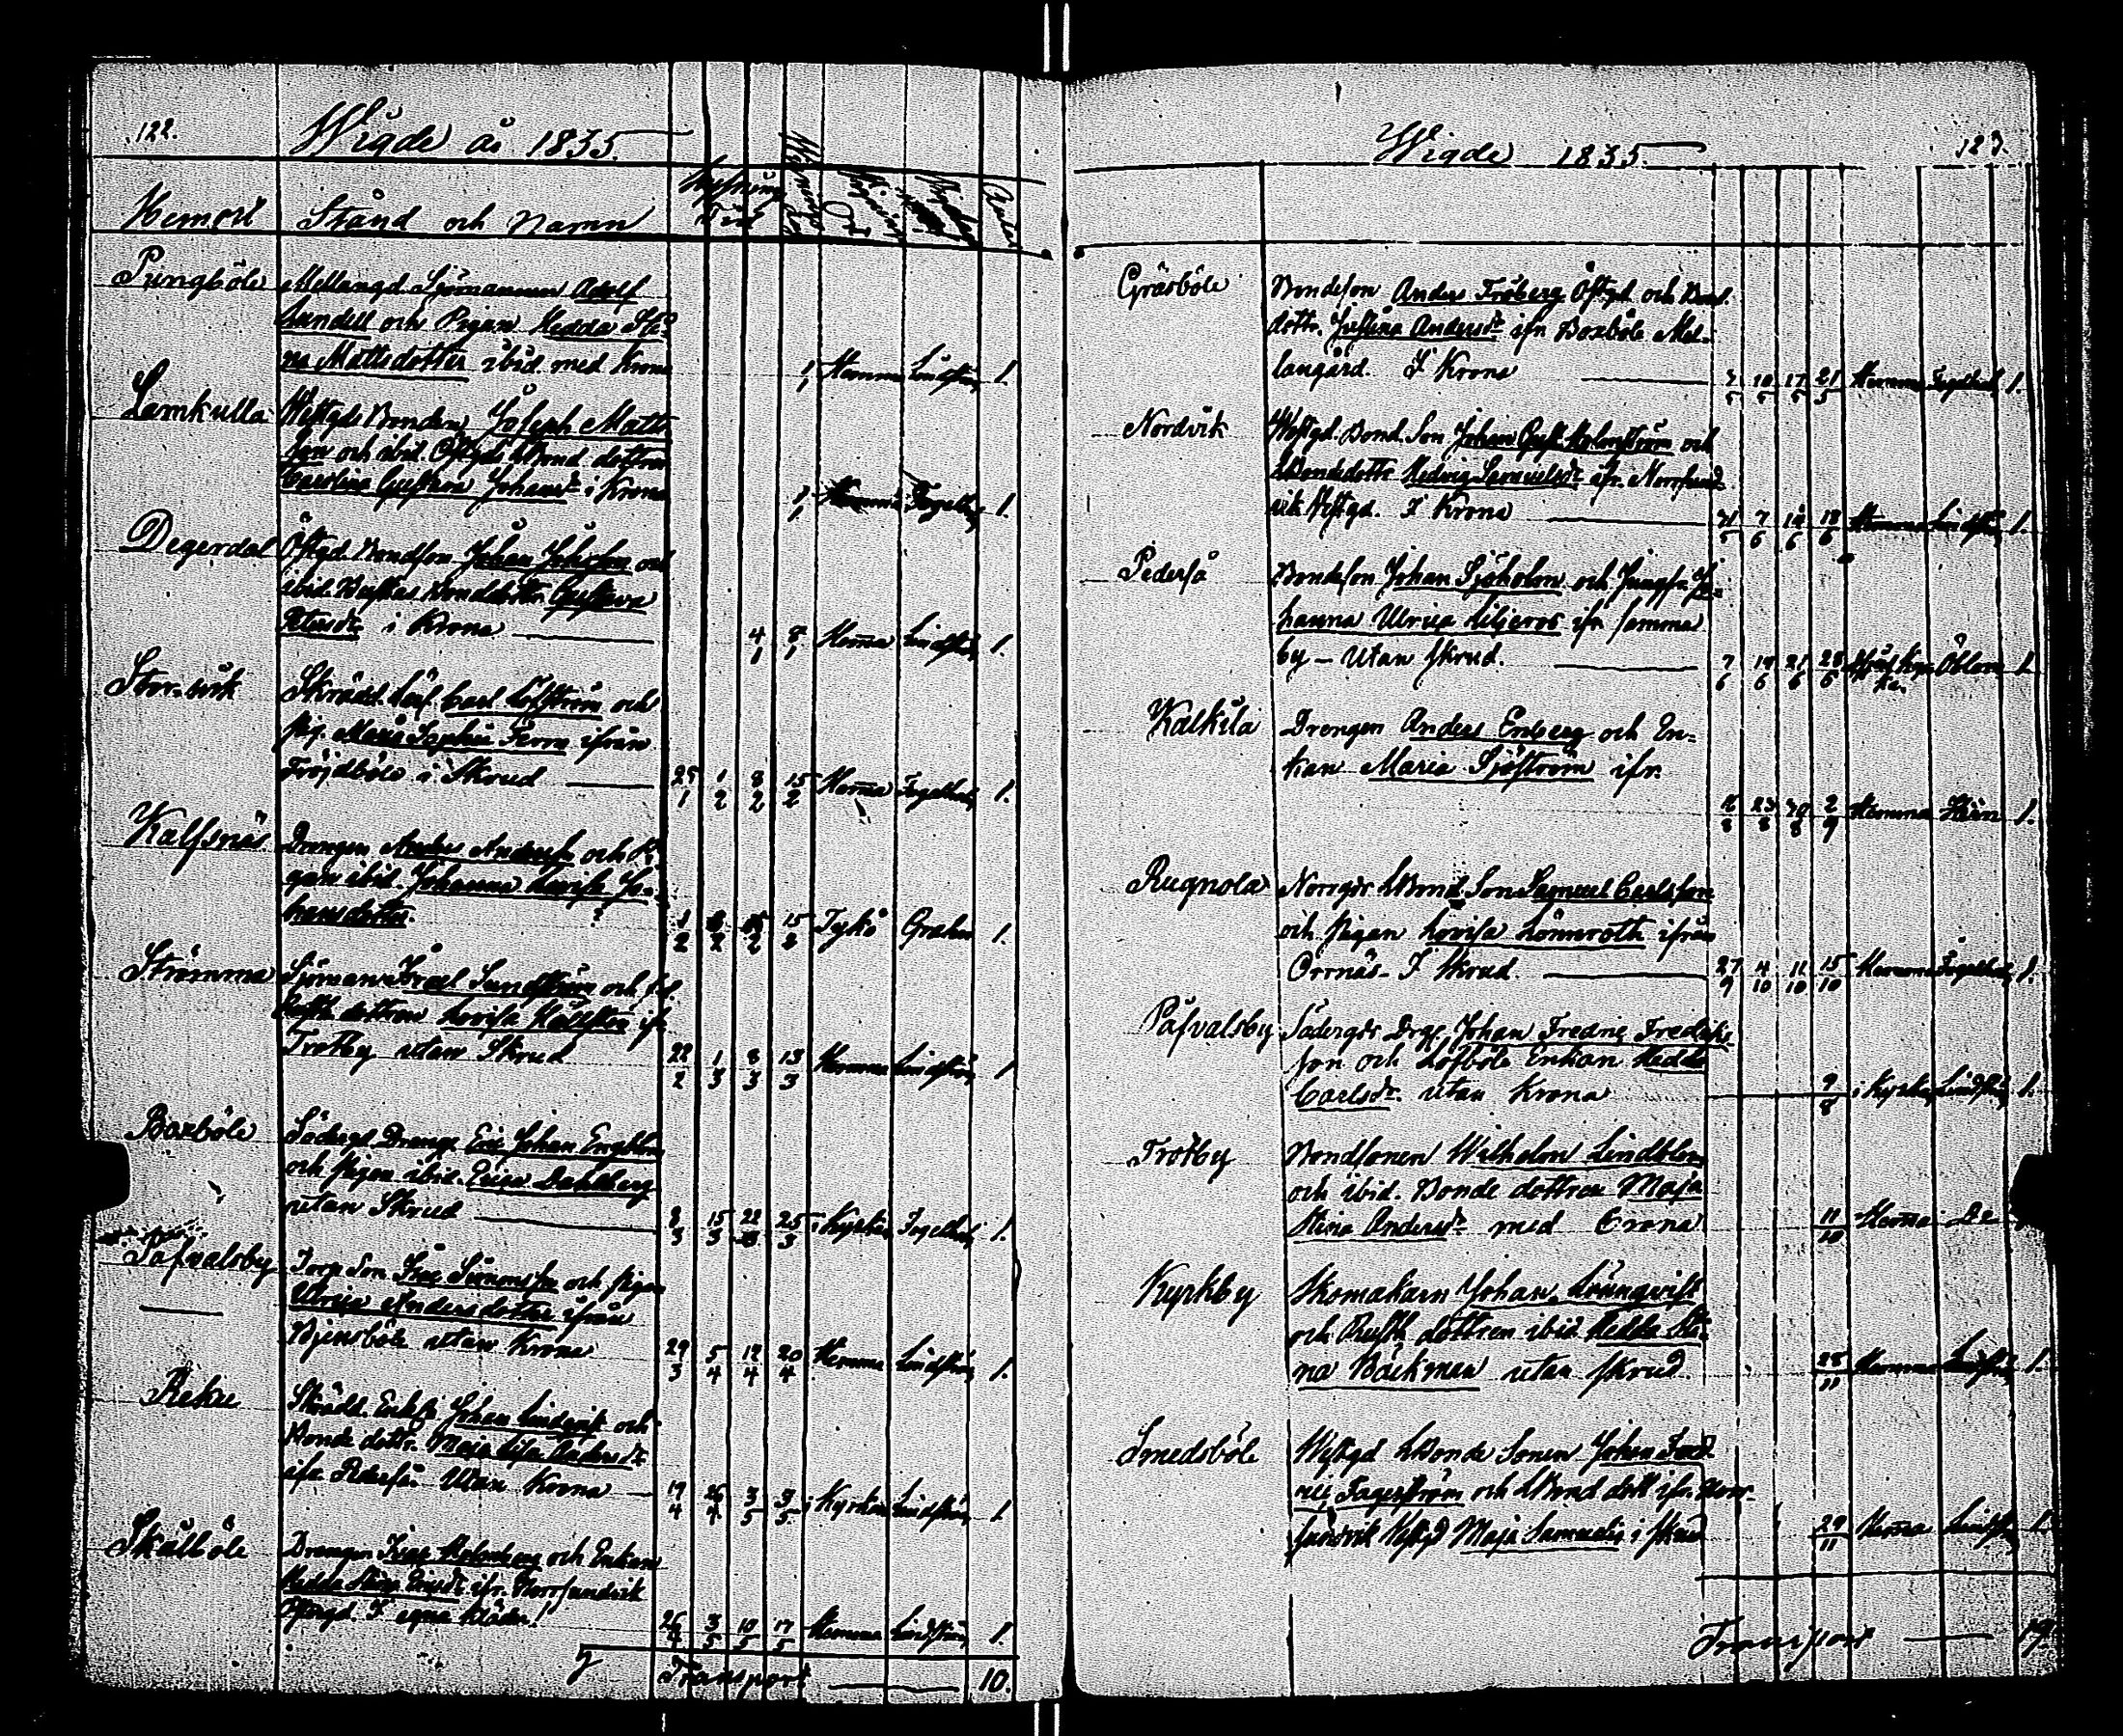 122.
Wigde år 1835
Hemort Stånd och Namn
Antal
Pungböle Mellangd. Sjömannen Adolf
Sundell och Pigan Hedda Sti-
na Mattsdotter ibid. med Krona 1/1 Hemma Lindström 1
Lemkulla Westgds Bonden Joseph Matts
son och ibid. Östgds Bond. dottren
Carolina Gustava Johansdr i Krona 1/1 Hemma 1.
Degerdal Östgd. Bondson Johan Johsson och
ibid. Bonddottr. Gustava
i Krona 4/1 8/1 Hemma Lindström 1.
Storwik Skrädd. Lärl. Carl Löfström och
pig. Maria Sophia ifrån
Fröjdböle i Skrud 25/1 1/2 8/2 15/2 Hemma 1.
Kalfsnäs Drengen Anders Anderss. och Pi-
gan ibid. Johanna Lovisa Jo-
hansdotter. 1/2 8/2 15/2 Tykö Grahn 1.
Strömma Sjöman Israel Sundström och
dottren Lovisa ifr.
Trotby utan Skrud 22/2 1/3 8/3 13/3 Hemma Lindström 1
Boxböle Södergd. Drenge Eric Johan Engblom
och pigan ibid. Erica Dahlberg
utan Skrud 8/3 15/3 22/3 25/3 i Kyrkan 1.
Påfvalsby Torp Son Isac Simonsson och pigan
Ulrica Andersdotter ifrån
Bjensböle utan Krona 29/3 5/4 12/4 20/4 Hemma Lindström 1.
Reku Skrädd. Johan Lindqvist och
Bonde dottr. Maja Lisa Andersdr
ifr. Pederså. Utan Krona 19/4 26/4 3/5 3/5 i Kyrkan Lindström 1
Skålböle Drengen Isac Holmberg och Enkan
Hedda Stina Ericsdr ifr. Norrsundvik
Östgd. I egna kläder! 26/4 3/5 10/5 17/5 Hemma Lindström 1.
Transport 10.
Wigde 1835 123.
Gräsböle Bondeson Anders Fröberg Östgd. och Bond.
dottr. Justina Andersdr ifr. Boxböle Mel-
langård. I Krona 3/5 10/5 17/5 21/5 Hemma 1.
Nordvik Westgd. Bond. Son Johan Gust. Holmström och
Bondedottr. Hedvig Samuelsdr ifr. Norrsund-
vik Westgd. I Krona 31/5 7/6 14/6 18/6 Hemma Lindström 1.
Pederså Bondeson Johan Sjöholm och Jungfr. Jo-
hanna Ulrica Liljeros ifr. samma
by - Utan skrud. 7/6 14/6 21/6 28/6 Öblom 1
Kalkila Drengen Anders Enberg och En-
kan Maria Sjöström ifr.
16/8 23/8 30/8 2/9 Hemma 1.
Rugnola Norrgår Bond Son Samuel Carlsson
och pigan Lovisa Lönnroth ifrån
Orrnäs - I Skrud. 27/9 4/10 11/10 15/10 Hemma 1.
Påfvalsby Södergår Drge. Johan Fredric Fredriks
son och Löfböle Enkan Hedda
Carlsdr. utan Krona 9/8 i Kyrkan Lindström 1.
Trotby Bondsonen Wilhelm Lindblom
och ibid. Bonde dottren Maja
Stina Andersdr med Crona 11/10 Hemma De
Kyrkby Skomakarn Johan Lönnqvist
och Rusth. dottren ibid. Hedda Sti-
na Bäckman utan skrud. 28/11 Hemma Lindström 1.
Smedsböle Westgd Bonde Sonen Johan Fred-
ric Fagerström och Bond. dott. ifr. Norr-
sundvik Westgd Maja Samuelis i Skrud 29/11 Hemma Lindström 1.
Transport 19